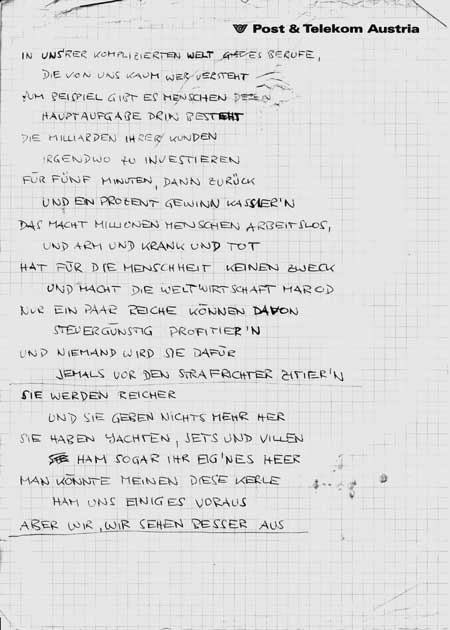 Post & Telekom Austria
IN UNS'RER KOMPLIZIERTEN WELT GIBT ES BERUFE,
DIE VON UNS KAUM WER VERSTEHT
ZUM BEISPIEL GIBT ES MENSCHEN DEREN
HAUPTAUFGABE DRIN BESTEHT
DIE MILLIARDEN IHRER KUNDEN
IRGENDWO ZU INVESTIEREN
FÜR FÜNF MINUTEN, DANN ZURÜCK
UND EIN PROZENT GEWINN KASSIER'N
DAS MACHT MILLIONEN MENSCHEN ARBEITSLOS,
UND ARM UND KRANK UND TOT
HAT FÜR DIE MENSCHHEIT KEINEN ZWECK
UND MACHT DIE WELTWIRTSCHAFT MAROD
NUR EIN PAAR REICHE KÖNNEN DAVON
STEUERGÜNSTIG PROFITIER'N
UND NIEMAND WIRD SIE DAFÜR
JEMALS VOR DEN STRAFRICHTER ZITIER'N
SIE WERDEN REICHER
UND SIE GEBEN NICHTS MEHR HER
SIE HABEN YACHTEN, JETS UND VILLEN
HAM SOGAR IHR EIG'NES HEER
MAN KÖNNTE MEINEN DIESE KERLE
HAM UNS EINIGES VORAUS
ABER WIR, WIR SEHEN BESSER AUS